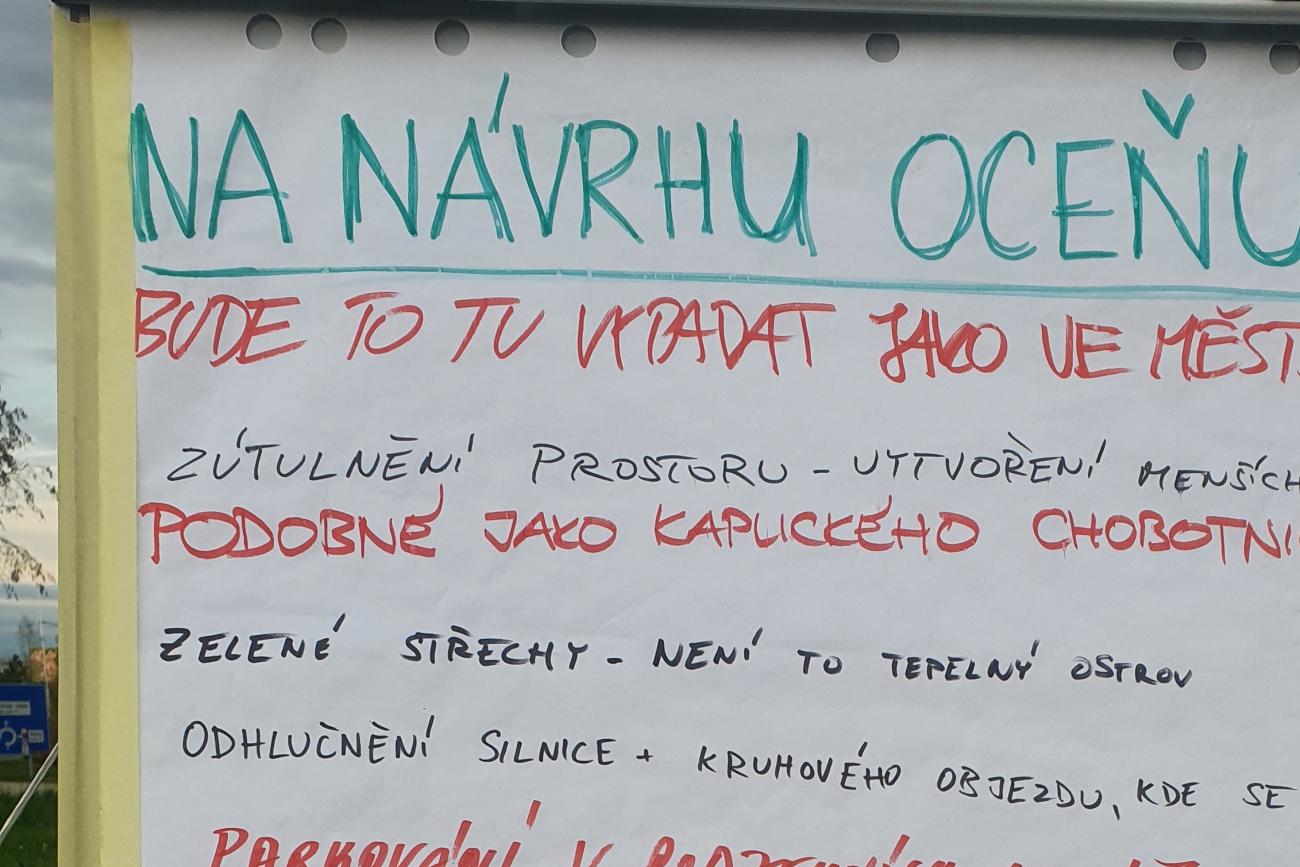 NA NÁVRHU OCEŇU
BUDE TO TU VYPADAT JAKO VE MĚST
ZÚTULNĚNÍ PROSTORU - VYTVOŘENÍ MENŠÍCH
PODOBNÉ JAKO KAPLICKÉHO CHOBOTNI
ZELENÉ STŘECHY - NENÍ TO TEPELNÝ OSTROV
ODHLUČNĚNÍ SILNICE + KRUHOVÉHO OBJEZDU, KDE SE
PARKOVÁNÍ V